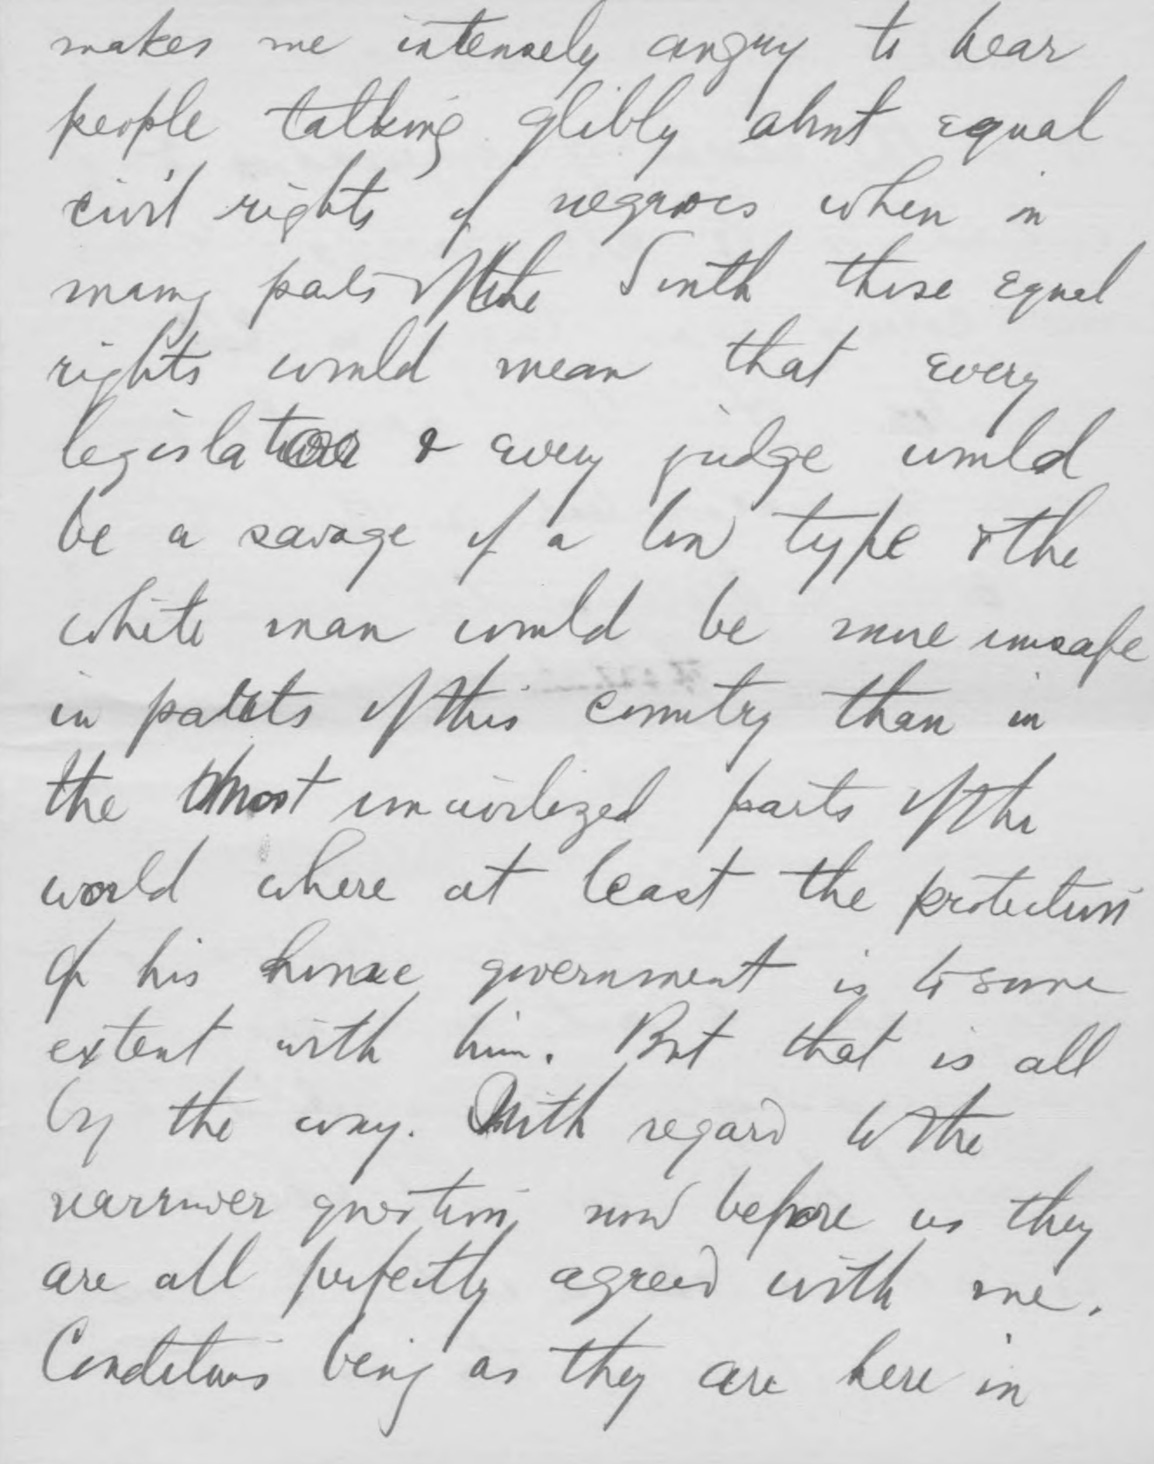 makes me intensely angry to hear
people talking glibly about equal
civil rights of negroes when in
many parts of the South those equal
rights would mean that every
legislator & every judge would
be a savage of a low type & the
white man would be more unsafe
in parts of this country than in
the most uncivilized parts of the
world where at least the protection
of his home government is to some
extent with him. But that is all
by the way. With regard to the
narrower question now before us they
are all perfectly agreed with me.
Conditions being as they are here in